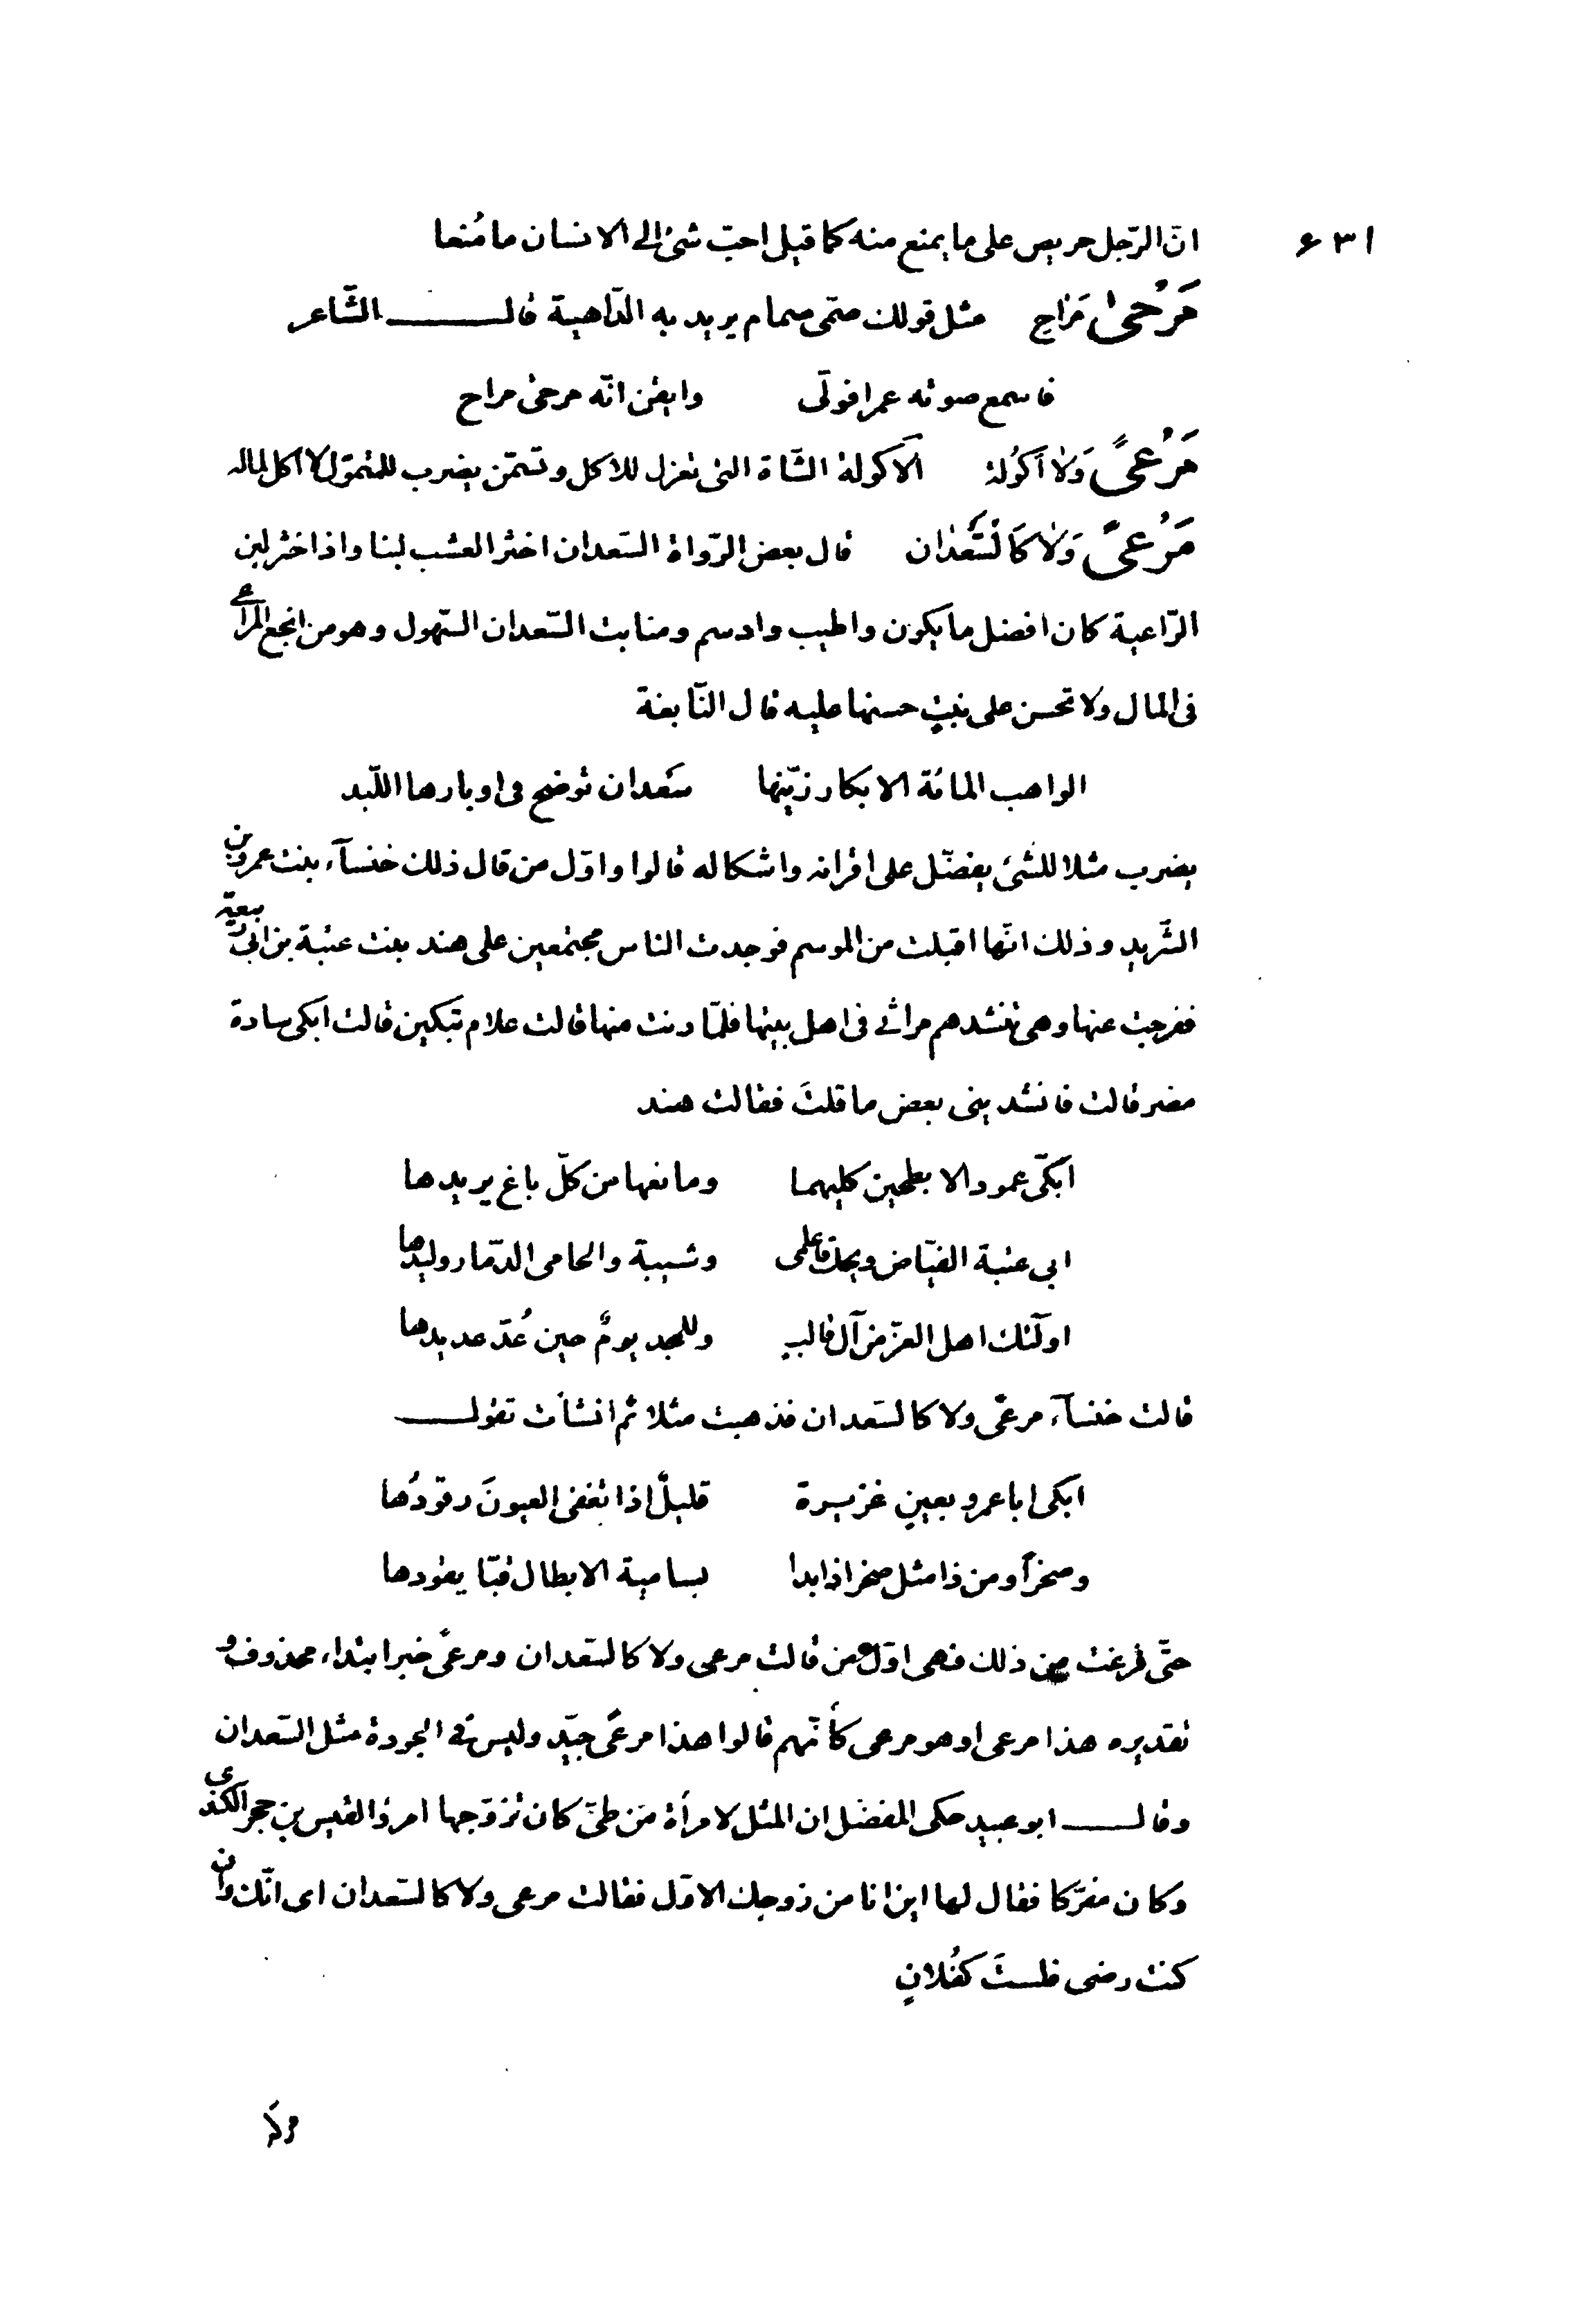 ۶۳۱
انّ الرّجل حريص على ما يمنع منه كما قيل احبّ شئ الى الانسان ما مُنعا
مَرْحىٰ مَرٰاحِ مثل قولك صمّى صمام يريد به الدّاهية قالـــــ الشّاعر
فاسمع صوته عمرا فولّى وايقن انّه مرحى مراح
مَرْعىً وَلٰا أَكُولَة الأكولة الشّاة التى تعزل للاكل وتسمّن يضرب للمتموّل لا آكل لماله
مَرْعىً وَلٰا كَالسَّعْدٰان قال بعض الرّواة السّعدان اخثر العشب لبنا واذا خثر لبن
الرّاعية كان افضل ما يكون واطيب وادسم ومنابت السّعدان السّهول وهو من انجع المراعى
فى المال ولا تحسن على نبتٍ حسنها عليه قال النّابغة
الواهب المائة الابكار زيّنها سَعدان توضح فى اوبارها اللّبد
يضرب مثلا للشئ يفضّل على اقرانه واشكاله قالوا واوّل من قال ذلك خنسآء بنت عمرو بن
الشّريد وذلك انّها اقبلت من الموسم فوجدت الناس مجتمعين على هند بنت عتبة بن ابى ربيعة
ففرجت عنها وهى تنشدهم مراثى فى اهل بيتها فلمّا دنت منها قالت علام تبكين قالت ابكى سادة
مضر قالت فانشدينى بعض ما قلتَ فقالت هند
ابكّى عمود الابطحين كليهما ومانعها من كلّ باغ يريدها
ابى عتبة الفيّاض ويحك فاعلمى وشيبة والحامى الذّمار وليدها
اولٓئك اهل العزّ من آل غالبٍ وللمجد يومٌ حين عُدّ عديدها
قالت خنسآء مرعًى ولا كالسّعدان فذهبت مثلا ثم انشأت تقولـــــ
ابكى ابا عمرو بعينٍ غزيرة قليلٌ اذا تغفى العيونَ رقودُها
وصخرًا ومن ذا مثل صخر اذا بدا بسامية الابطال قبّا يقودها
حتّى فرغت من ذلك فهى اوّل من قالت مرعى ولا كالسّعدان ومرعىً خبر ابتداء محذوف و
تقديره هذا مرعى او هو مرعى كأنّهم قالوا هذا مرعًى جيّد وليس فى الجودة مثل السّعدان
وقالـــــ ابو عبيد حكى المفضّل ان المثل لامرأة من طىّ كان تزوّجها امرؤ القيس بن حجر الكندى
وكان مفرّكا فقال لها اين انا من زوجك الاوّل فقالت مرعى ولا كالسّعدان اى انّك وان
كنت رضى فلستَ كفُلانٍ